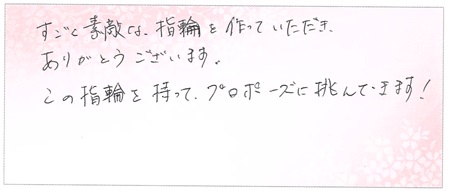 すごく素敵な、指輪を作っていただき、
ありがとうございます。
この指輪を持って、プロポーズに挑んできます!